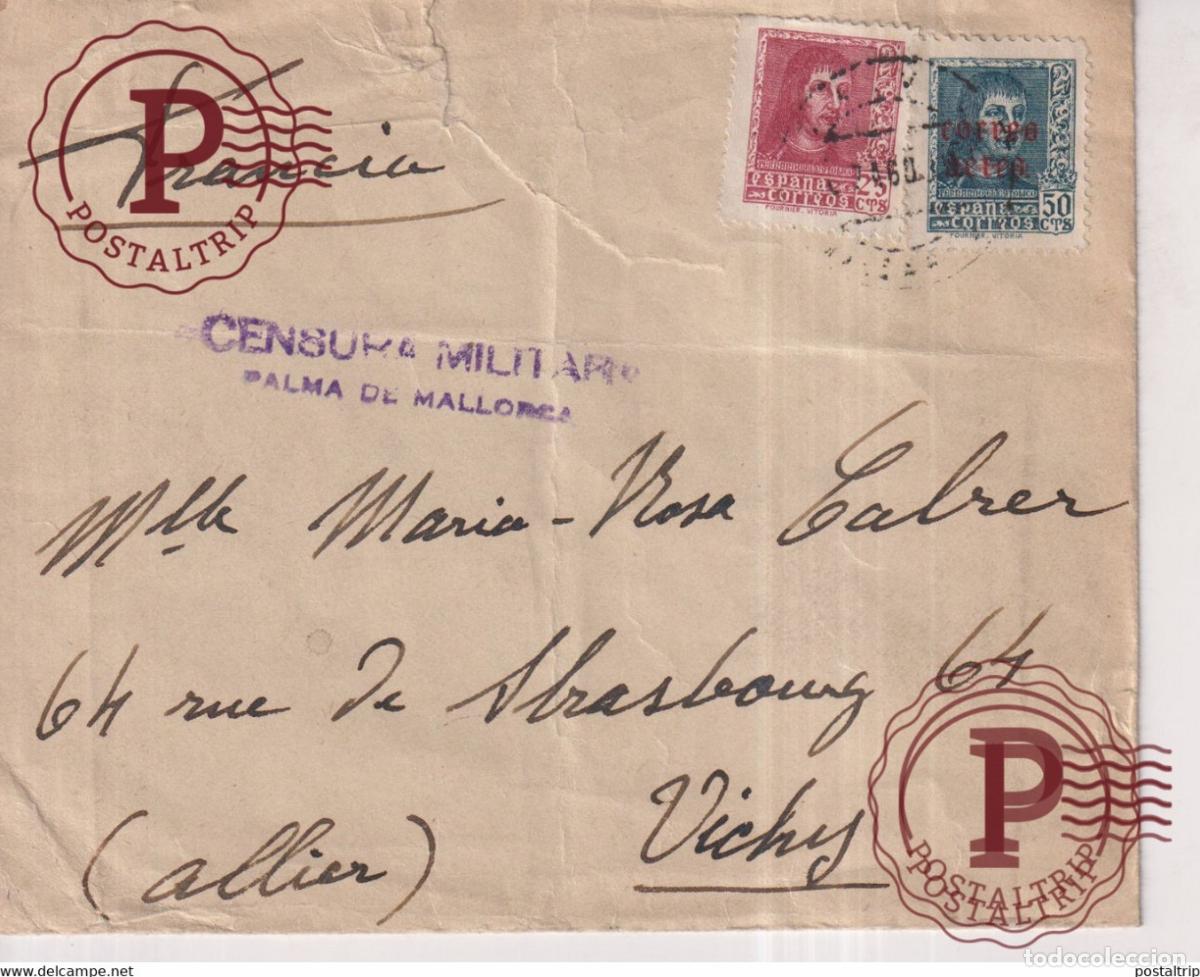 Francia
POSTALTRIP
ESPAÑA
CORREOS
25
CTS
FOURNIER. VITORIA
correo
aereo
ESPAÑA
CORREOS
50
CTS
FOURNIER. VITORIA
AGO.
CENSURA MILITAR
PALMA DE MALLORCA
Mlle Maria-Rosa Cabrer
64 rue de Strasbourg 64
Vichy
(allier)
POSTALTRIP
POSTALTRIP
todocoleccion
www.delcampe.net
postaltrip